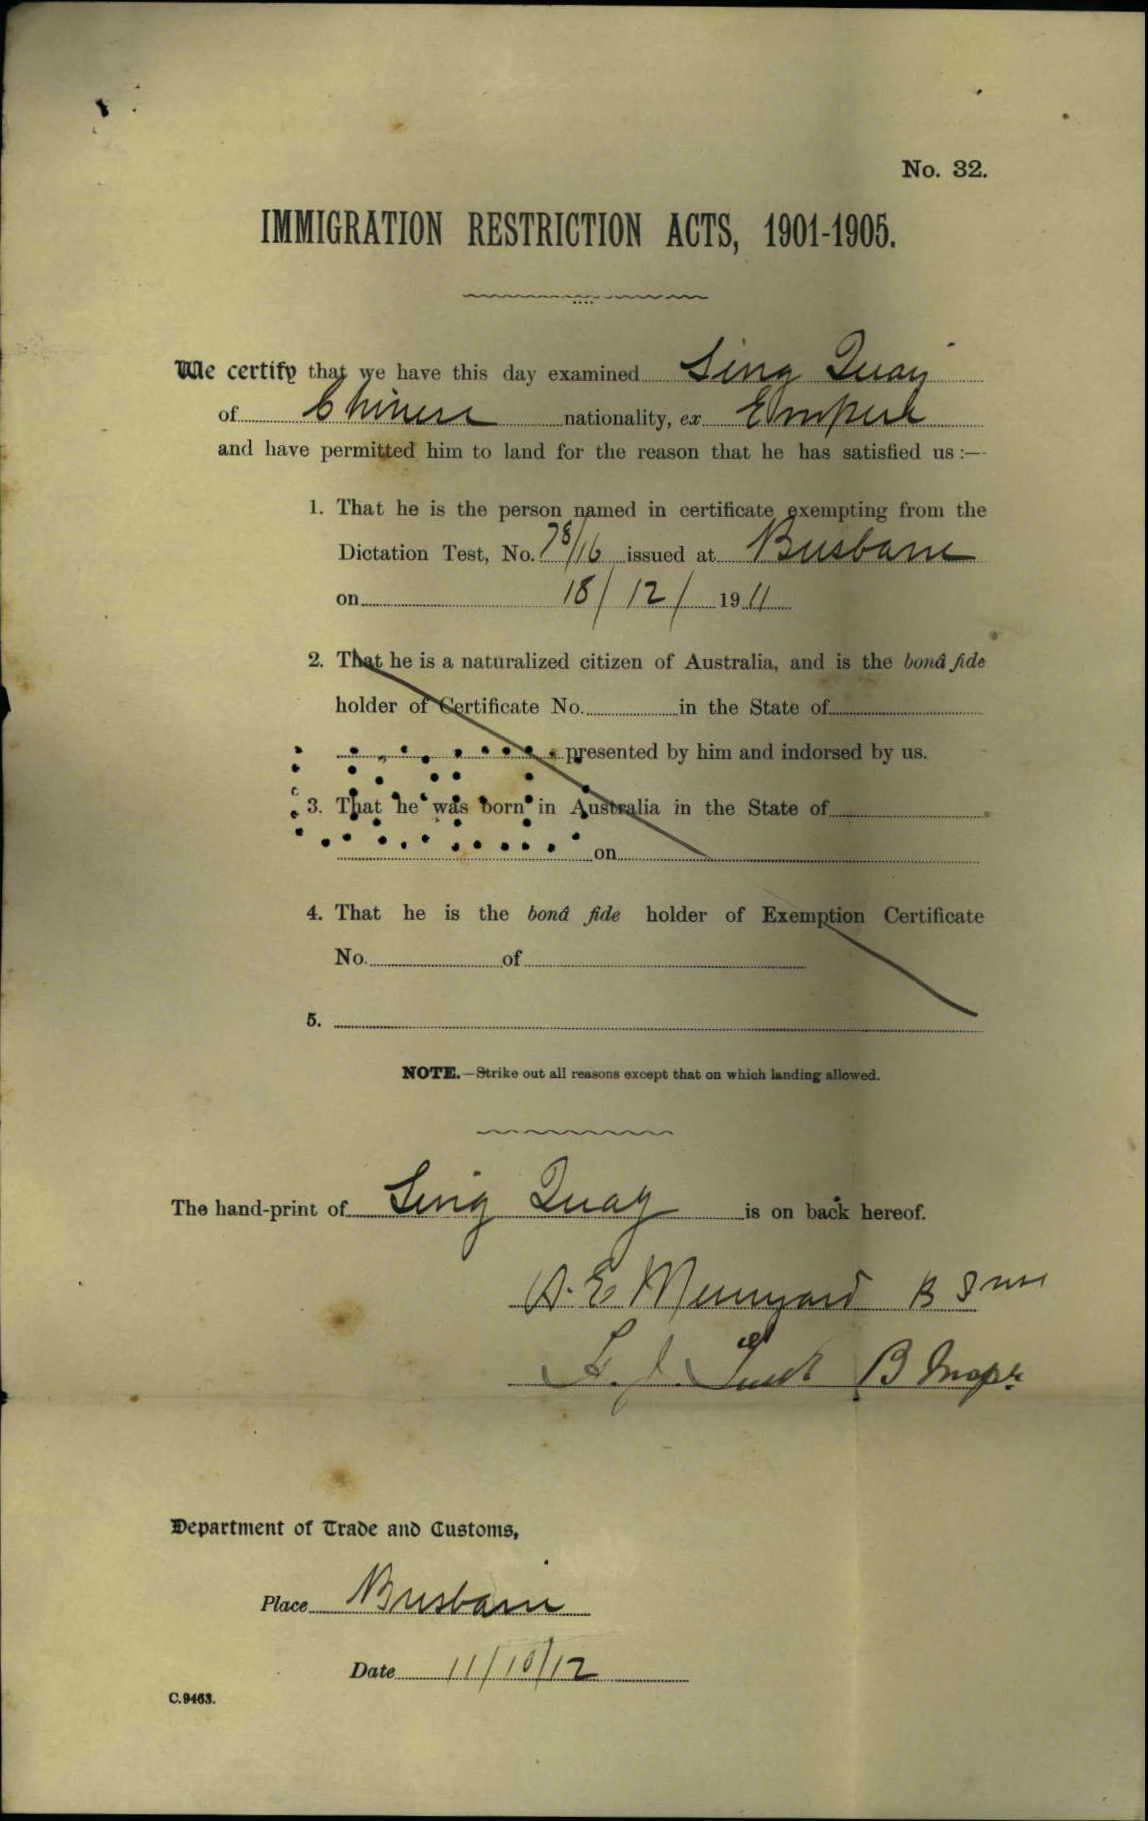 No. 32.
IMMIGRATION RESTRICTION ACTS, 1901-1905.
We certify that we have this day examined Sing Quay
of Chinese nationality, ex Empire
and have permitted him to land for the reason that he has satisfied us :—
1. That he is the person named in certificate exempting from the
Dictation Test, No. 78/16 issued at Brisbane
on 18/12/1911
2. That he is a naturalized citizen of Australia, and is the bonâ fide
holder of Certificate No. in the State of
presented by him and indorsed by us.
3. That he was born in Australia in the State of
on
4. That he is the bonâ fide holder of Exemption Certificate
No. of
5.
NOTE.—Strike out all reasons except that on which landing allowed.
The hand-print of Sing Quay is on back hereof.
E B
J. B Inspr
Department of Trade and Customs,
Place Brisbane
Date 11/10/12
C.9463.